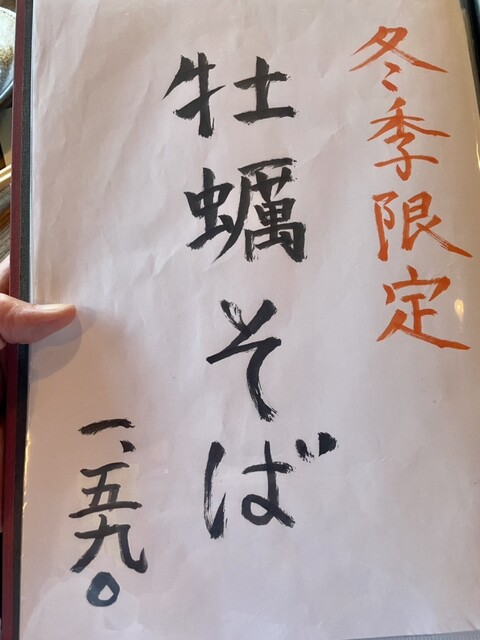 冬季限定
牡蠣そば
一、五九〇